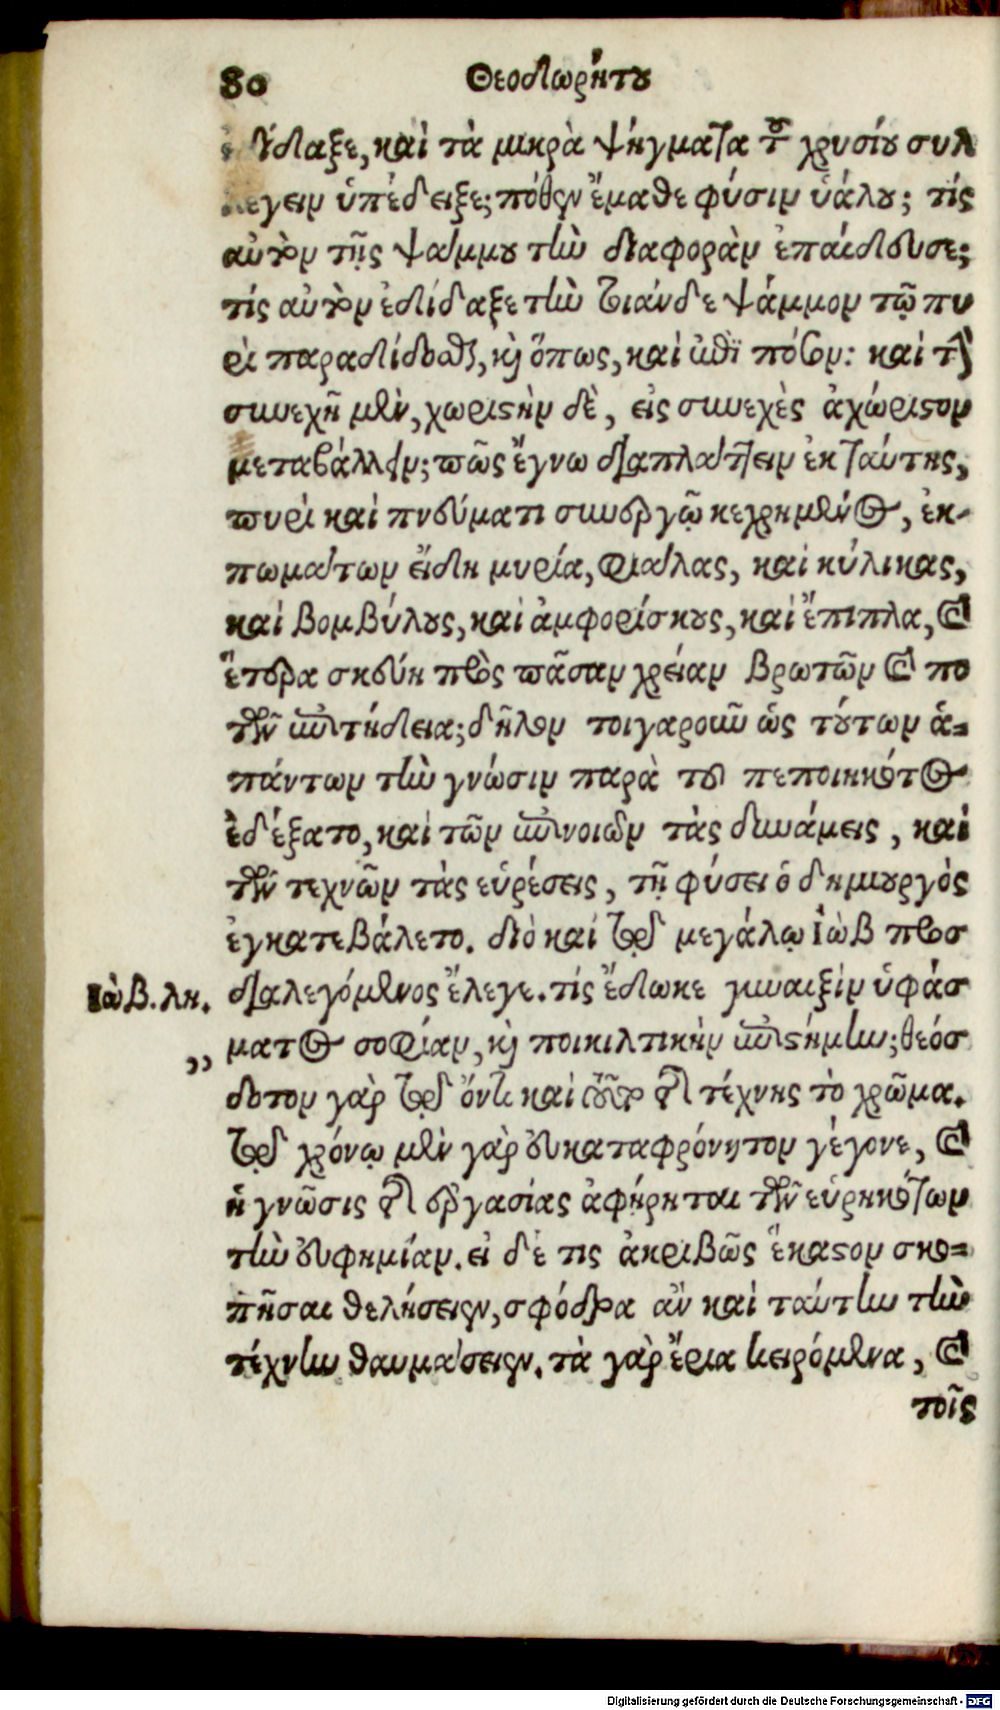 80 Θεοδωρήτου
ἐδίδαξε, καὶ τὰ μικρὰ ψήγματα τοῦ χρυσίου συλ
λέγειν ὑπέδειξε; πόθεν ἔμαθε φύσιν ὑάλου; τίς
αὐτὸν τῆς ψάμμου τὴν διαφορὰν ἐπαίδευσε;
τίς αὐτὸν ἐδίδαξε τὴν τοιάνδε ψάμμον τῷ πυ
ρὶ παραδίδοσθαι, καὶ ὅπως, καὶ ἐπὶ πόσον: καὶ τὴν
συνεχῆ μὲν, χωριστὴν δὲ, εἰς συνεχὲς ἀχώριστον
μεταβάλλειν; πῶς ἔγνω διαπλάττειν ἐκ ταύτης,
πυρὶ καὶ πνεύματι συνεργῷ κεχρημένος, ἐκ-
πωμάτων εἴδη μυρία, φιάλας, καὶ κύλικας,
καὶ βομβύλους, καὶ ἀμφορίσκους, καὶ ἔπιπλα, καὶ
ἕτερα σκεύη πρὸς πᾶσαν χρείαν βρωτῶν καὶ πο
τῶν ἐπιτήδεια; δῆλον τοιγαροῦν ὡς τούτων ἁ=
πάντων τὴν γνῶσιν παρὰ τοῦ πεποιηκότος
ἐδέξατο, καὶ τῶν ἐπινοιῶν τὰς δυνάμεις, καὶ
τῶν τεχνῶν τὰς εὑρέσεις, τῇ φύσει ὁ δημιουργὸς
ἐγκατεβάλετο. διὸ καὶ τῷ μεγάλῳ Ἰὼβ προσ
Ἰὼβ. λη. διαλεγόμενος ἔλεγε. τίς ἔδωκε γυναιξὶν ὑφάσ
,, ματος σοφίαν, καὶ ποικιλτικὴν ἐπιστήμην; θεόσ
δοτον γὰρ τῷ ὄντι καὶ τοῦτο τῆς τέχνης τὸ χρῶμα.
τῷ χρόνῳ μὲν γὰρ εὐκαταφρόνητον γέγονε, καὶ
ἡ γνῶσις τῆς ἐργασίας ἀφῄρηται τῶν εὑρηκότων
τὴν εὐφημίαν. εἰ δέ τις ἀκριβῶς ἕκαστον σκο=
πῆσαι θελήσειεν, σφόδρα ἂν καὶ ταύτην τὴν
τέχνην θαυμάσειεν. τὰ γὰρ ἔρια κειρόμενα, καὶ
τοῖς
Digitalisierung gefördert durch die Deutsche Forschungsgemeinschaft - DFG